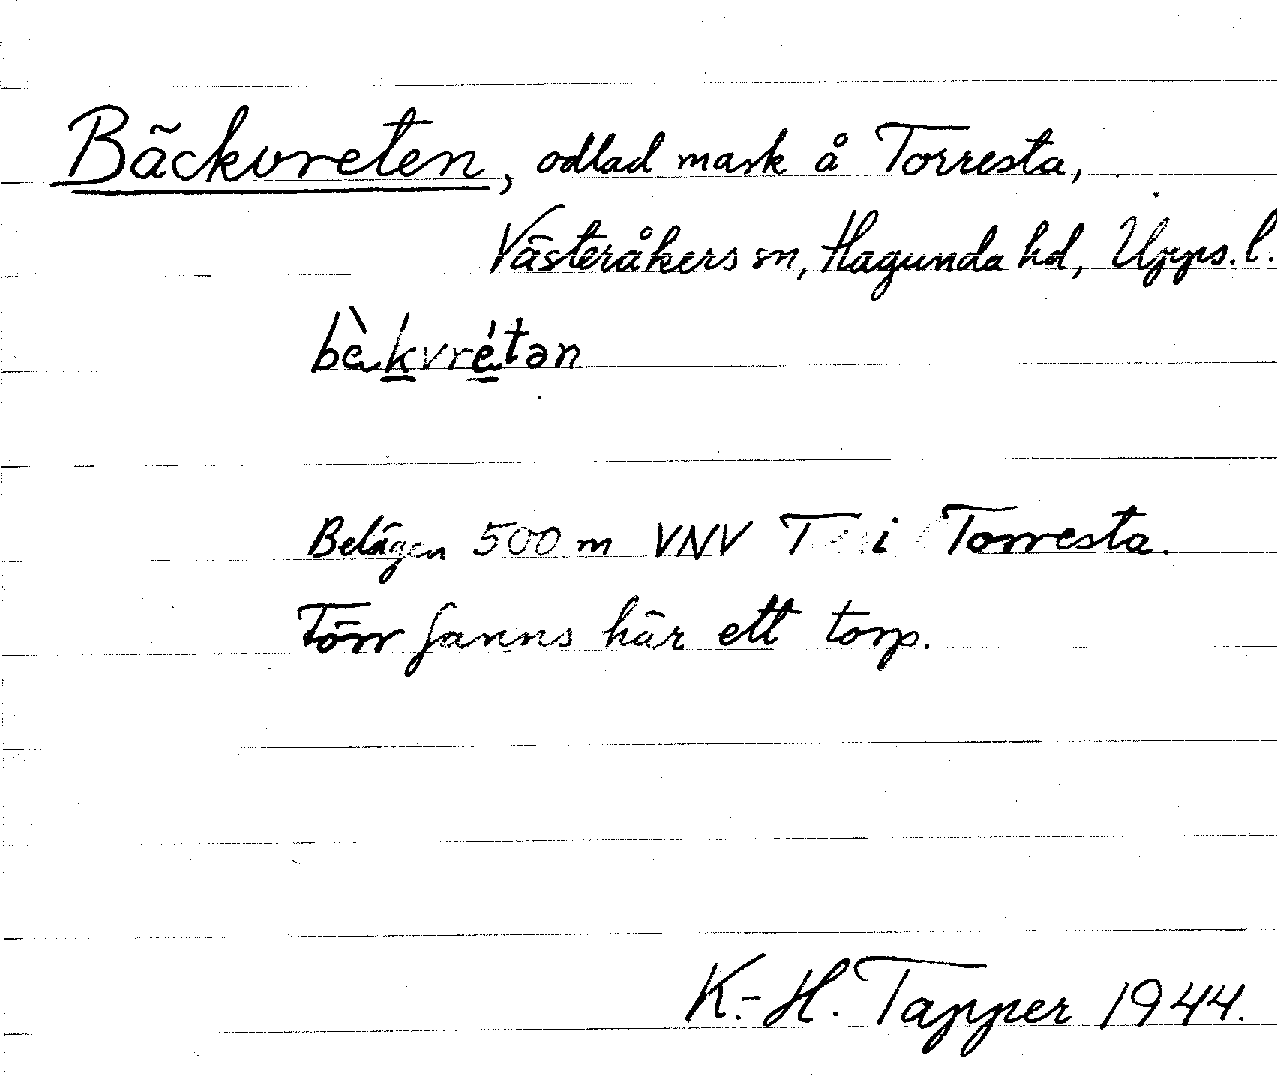 Bäckvreten, odlad mark å Torresta,
Västeråkers sn, Hagunda hd, Upps. l.
bèkvrétən
Belägen 500 m VNV T i Torresta.
Förr fanns här ett torp.
K.-H. Tapper 1944.